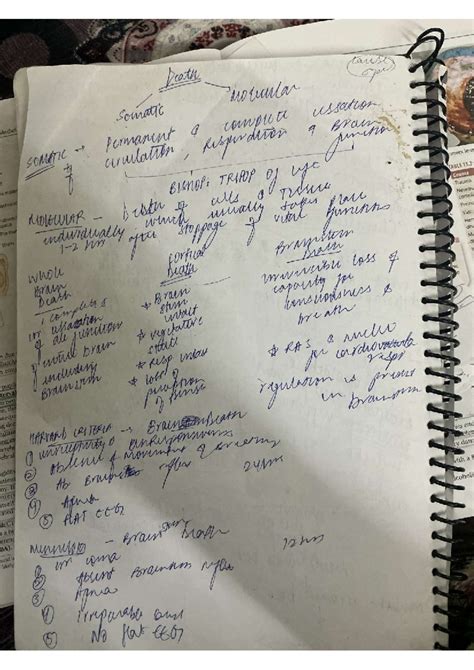 Death
Somatic Molecular
SOMATIC → Permanent & complete cessation
of circulation, Respiration & Brain
function
BISHOP: TRIPOD of life
MOLECULAR - Death of cells & tissues
individually which usually takes place
1-2 hrs after stoppage of vital functions
Whole Brain Death
Cortical Death
Brainstem Death
complete & irr cessation of all functions of entire Brain including Brainstem
* Brain stem intact
* vegetative state
* Resp intact
* loss of perception of senses
irreversible loss of capacity for consciousness & breath
* RAS & nuclei for cardiovascular & resp
regulation is present in Brainstem
HARVARD CRITERIA → Brain Death
① unreceptivity & unresponsiveness
② Absence of movements & breathing
③ Ab Brainstem reflex 24 hrs
④ Apnea
⑤ FLAT EEG
- Brain Death 12 hrs
① irr coma
② Absent Brainstem reflex
③ Apnea
④ Irreparable
⑤ No flat EEG
TABLE
Trauma